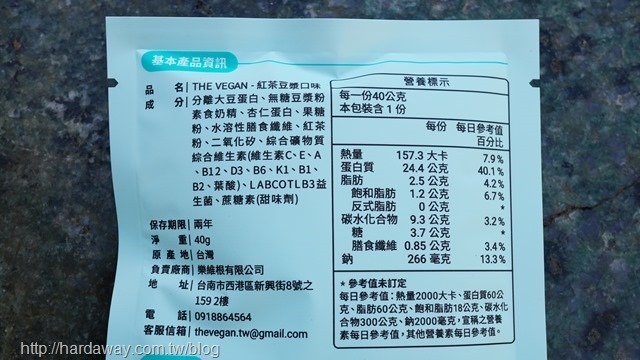 基本產品資訊
品名| THE VEGAN - 紅茶豆漿口味
成分| 分離大豆蛋白、無糖豆漿粉
素食奶精、杏仁蛋白、果糖
粉、水溶性膳食纖維、紅茶
粉、二氧化矽、綜合礦物質
綜合維生素(維生素C、E、A
、B12、D3、B6、K1、B1、
B2、葉酸)、LABCOTLB3益
生菌、蔗糖素(甜味劑)
保存期限| 兩年
淨重| 40g
原產地| 台灣
負責廠商| 樂維根有限公司
地址| 台南市西港區新興街8號之
159 2樓
電話| 0918864564
客服信箱| thevegan.tw@gmail.com
營養標示
每一份40公克
本包裝含 1 份
每份 每日參考值
百分比
熱量 157.3 大卡 7.9%
蛋白質 24.4 公克 40.1%
脂肪 2.5 公克 4.2%
飽和脂肪 1.2 公克 6.7%
反式脂肪 0 公克 *
碳水化合物 9.3 公克 3.2%
糖 3.7 公克 *
膳食纖維 0.85 公克 3.4%
鈉 266 毫克 13.3%
* 參考值未訂定
每日參考值：熱量2000大卡、蛋白質60公
克、脂肪60公克、飽和脂肪18公克、碳水化
合物300公克、鈉2000毫克，宣稱之營養
素每日參考值，其他營養素每日參考值。
http://hardaway.com.tw/blog